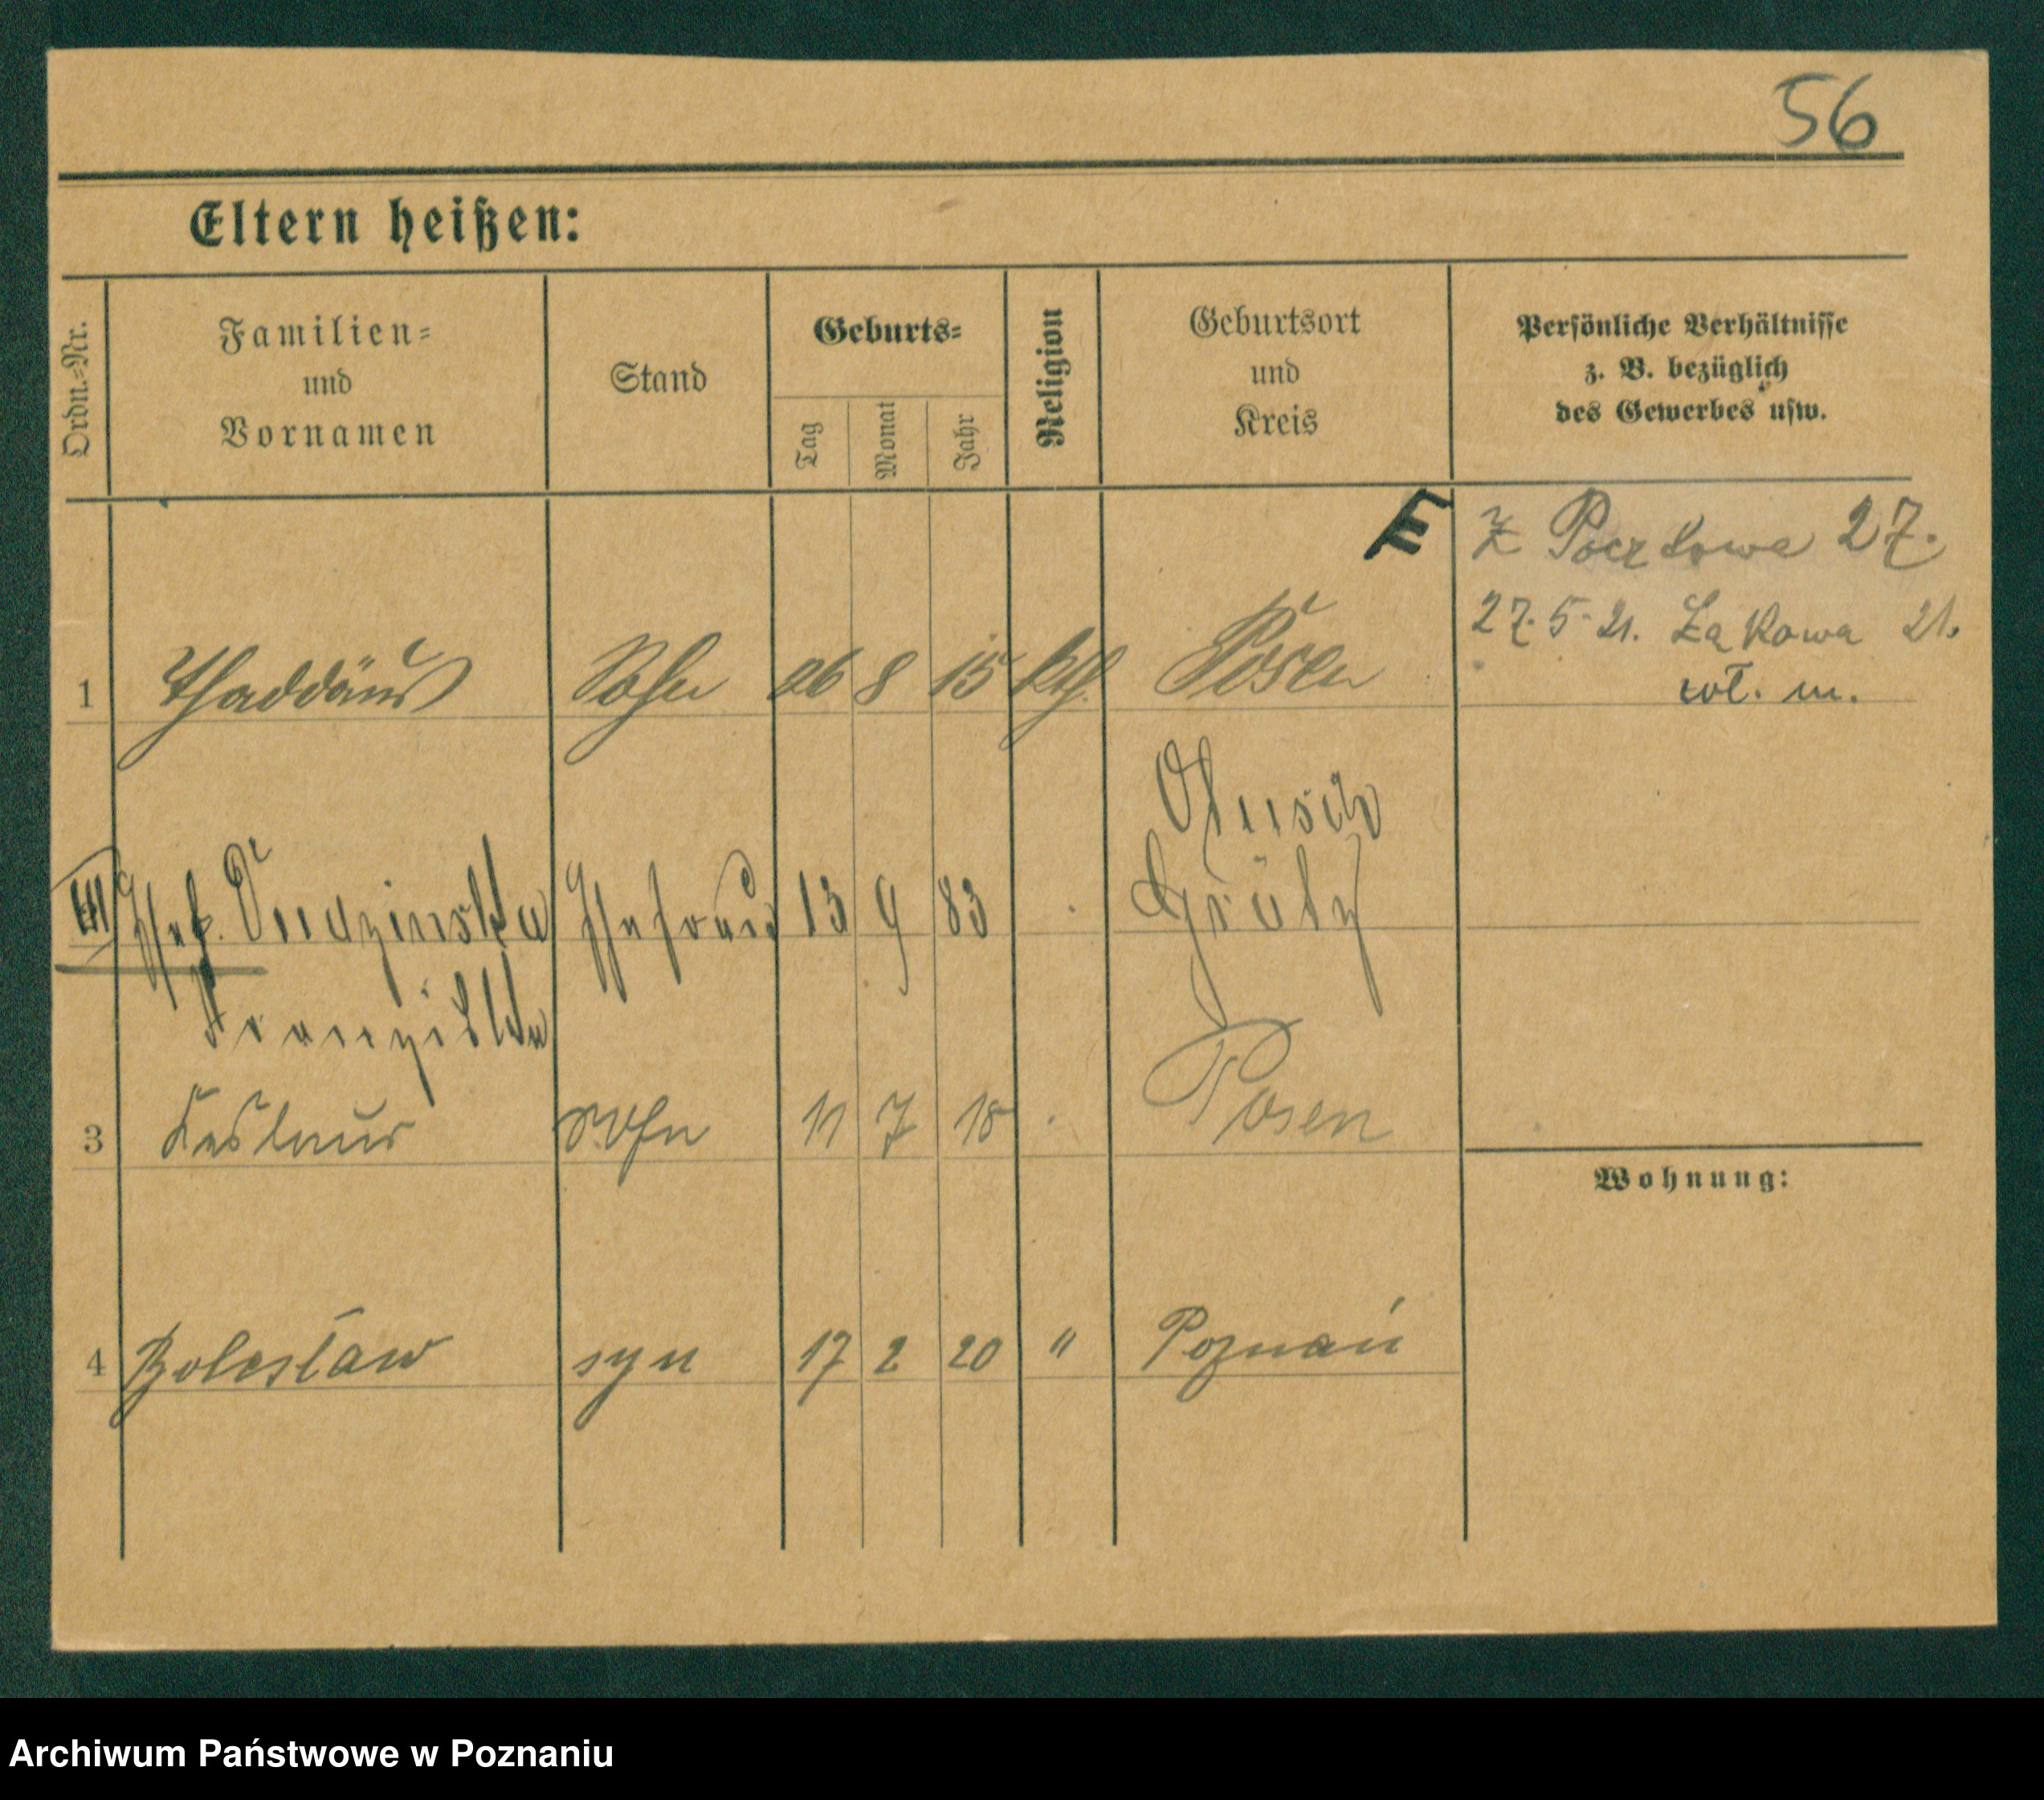 56
Eltern heißen:
Ordn.=Nr.
Familien=
und
Vornamen
Stand
Geburts=
Tag
Monat
Jahr
Religion
Geburtsort
und
Kreis
Persönliche Verhältnisse
z. B. bezüglich
des Gewerbes usw.
E
Z Pocztowa 27.
27. 5. 21. Łąkowa 21.
wł. m.
1 Thaddäus Sohn 26 8 15 kth. Posen
Grätz
Ehefrau 13 9 83
Franziska
3 Sohn 11 7 18 Posen
Wohnung:
4 Bolesław syn 17 2 20 " Poznań
Archiwum Państwowe w Poznaniu